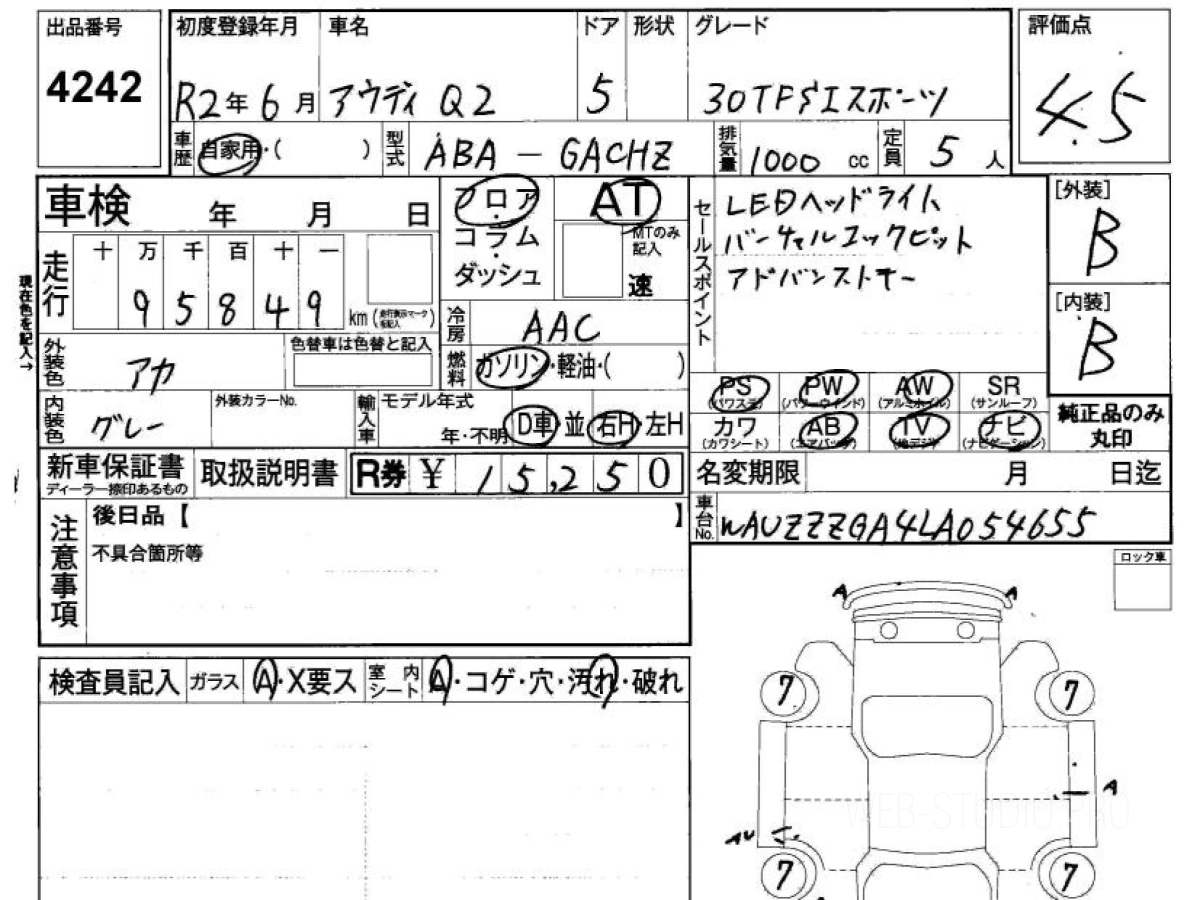 出品番号
4242
初度登録年月 車名 ドア 形状 グレード
R2年6月 アウディ Q2 5 30TFSIスポーツ
評価点
4.5
車歴 自家用・( ) 型式 ABA-GACHZ 排気量 1000 cc 定員 5 人
車検 年 月 日
フロア・コラム・ダッシュ
AT
MTのみ記入
速
セールスポイント
LEDヘッドライト
バーチャルコックピット
アドバンストキー
[外装]
B
[内装]
B
現在色を記入→
走行 十 万 千 百 十 一
95849 km (走行表示マーク後記入)
冷房 AAC
外装色 アカ 色替車は色替と記入
燃料 ガソリン・軽油・( )
内装色 グレー 外装カラーNo. 輸入車 モデル年式
年・不明 D車 並 右H 左H
PS (パワステ) PW (パワーウインド) AW (アルミホイル) SR (サンルーフ)
カワ (カワシート) AB (エアバッグ) TV (地デジ) ナビ (ナビゲーション)
純正品のみ
丸印
新車保証書 ディーラー捺印あるもの 取扱説明書 R券 ¥ 15,250
名変期限 月 日迄
車台No. WAUZZZGA4LA054655
注意事項
後日品【 】
不具合箇所等
ロック車
検査員記入 ガラス A・X要ス 室内シート A・コゲ・穴・汚れ・破れ
A A
7 7
A
AU
7 7
WEB-STUDIO.PRO